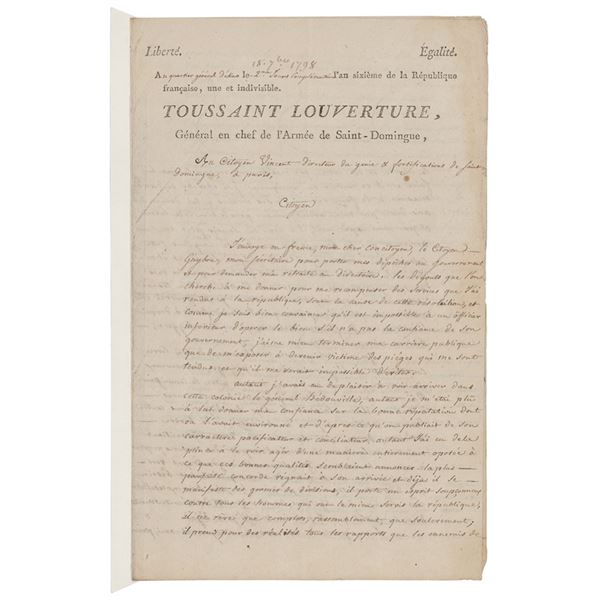 Liberté. Égalité.
18. 7bre 1798
Au quartier général le 2me Jour Complémentaire l'an sixième de la République
française, une et indivisible.
TOUSSAINT LOUVERTURE,
Général en chef de l'Armée de Saint-Domingue,
Au Citoyen Vincent directeur du genie & fortifications de Saint
domingue, à paris,
Citoyen
J'envoye en france, mon cher concitoyen, le Citoyen
Guybre, mon Secrétaire pour porter mes dépêches au Gouvernement
& pour demander ma retraite au directoire. les dégouts que l'on
cherche à me donner pour me recompenser des Services que j'ai
rendus à la république, sont la cause de cette résolution, et
comme je suis bien convaincu qu'il est impossible à un officier
inferieur d'operer le bien s'il n'a pas la confiance de son
gouvernement, j'aime mieux terminer ma carrière publique
que de m'exposer à devenir victime des pièges qui me sont
tendus, et qu'il me serait impossible d'eviter.
autant j'avais eu de plaisir à voir arriver dans
cette colonie le général Hédouville, autant je m'étais plu
à lui donner ma confiance sur la bonne réputation dont
on l'avait environné et d'après ce qu'on publiait de son
caractère pacificateur et conciliateur, autant j'ai eu de la
peine à le voir agir d'une manière entierement oposée à
ce que ces bonnes qualités semblaient annoncer. la plus
parfaite concorde regnait à son arrivée et déjà il se
manifeste des germes de divisions, il porte un esprit soupçonneux
contre tous les hommes qui ont le mieux servis la république,
il ne rêve que complots, rassemblement, que soulevement,
il prend pour des réalités tous les rapports que les ennemis de